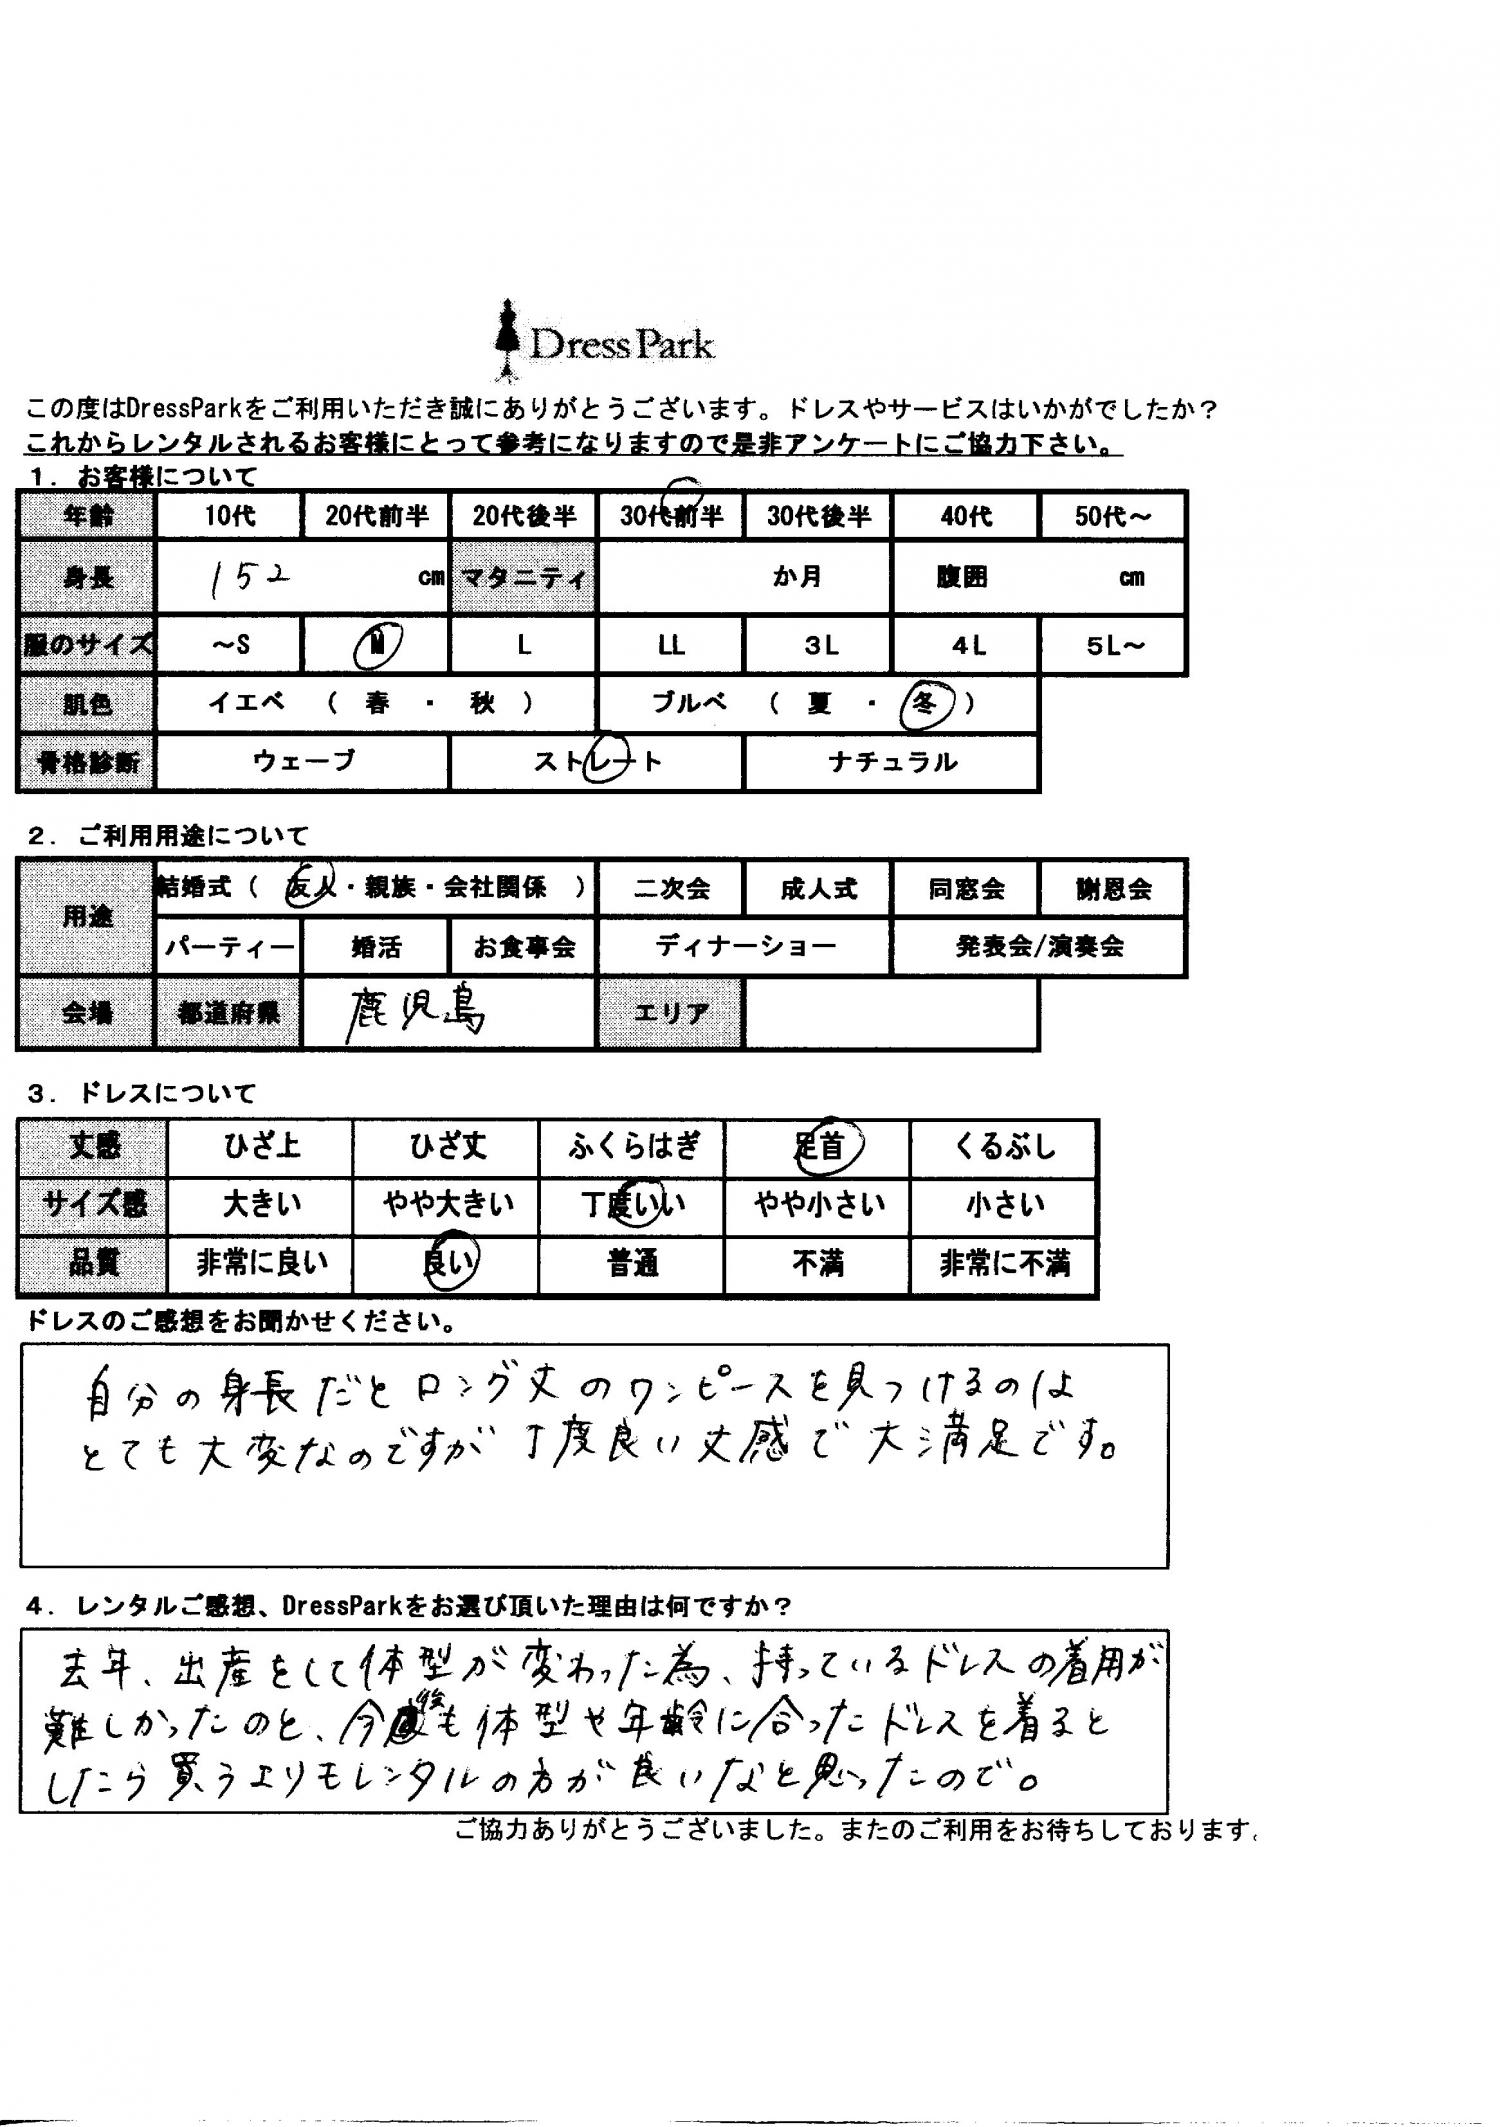 Dress Park
この度はDressParkをご利用いただき誠にありがとうございます。ドレスやサービスはいかがでしたか？
これからレンタルされるお客様にとって参考になりますので是非アンケートにご協力下さい。
１．お客様について
年齢 10代 20代前半 20代後半 30代前半 30代後半 40代 50代～
身長 152 cm マタニティ か月 腹囲 cm
服のサイズ ～S M L LL 3L 4L 5L～
肌色 イエベ （ 春 ・ 秋 ） ブルベ （ 夏 ・ 冬 ）
骨格診断 ウェーブ ストレート ナチュラル
２．ご利用用途について
用途 結婚式（ 友人・親族・会社関係 ） 二次会 成人式 同窓会 謝恩会
パーティー 婚活 お食事会 ディナーショー 発表会/演奏会
会場 都道府県 鹿児島 エリア
３．ドレスについて
丈感 ひざ上 ひざ丈 ふくらはぎ 足首 くるぶし
サイズ感 大きい やや大きい 丁度いい やや小さい 小さい
品質 非常に良い 良い 普通 不満 非常に不満
ドレスのご感想をお聞かせください。
自分の身長だとロング丈のワンピースを見つけるのは
とても大変なのですが丁度良い丈感で大満足です。
４．レンタルご感想、DressParkをお選び頂いた理由は何ですか？
去年、出産をして体型が変わった為、持っているドレスの着用が
難しかったのと、今後も体型や年齢に合ったドレスを着ると
したら買うよりもレンタルの方が良いなと思ったので。
ご協力ありがとうございました。またのご利用をお待ちしております。